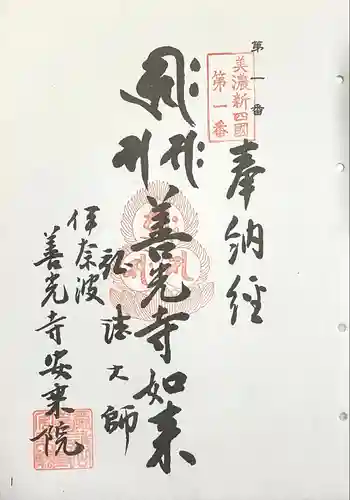 第一番
美濃新四國
第一番
奉納経
善光寺如来
弘法大師
伊奈波
善光寺安乗院